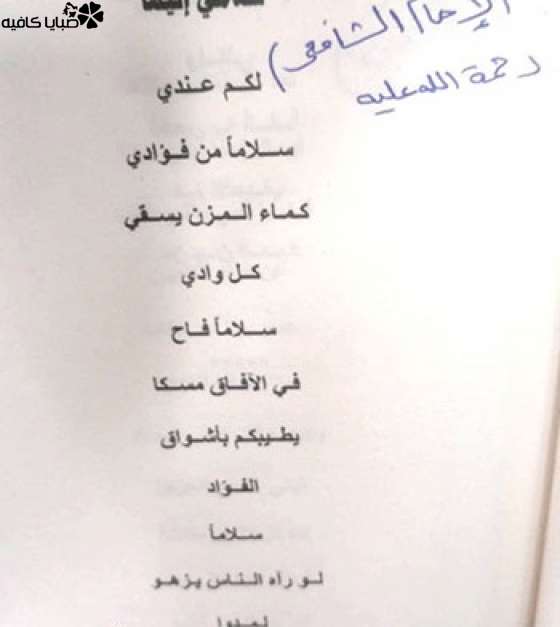 صبايا كافيه
الإمام الشافعي)
رحمة الله عليه
لكم عندي
سلاماً من فؤادي
كماء المزن يسقي
كل وادي
سلاماً فاح
في الآفاق مسكا
يطيبكم بأشواق
الفؤاد
سلاماً
لو رآه الناس يزهو